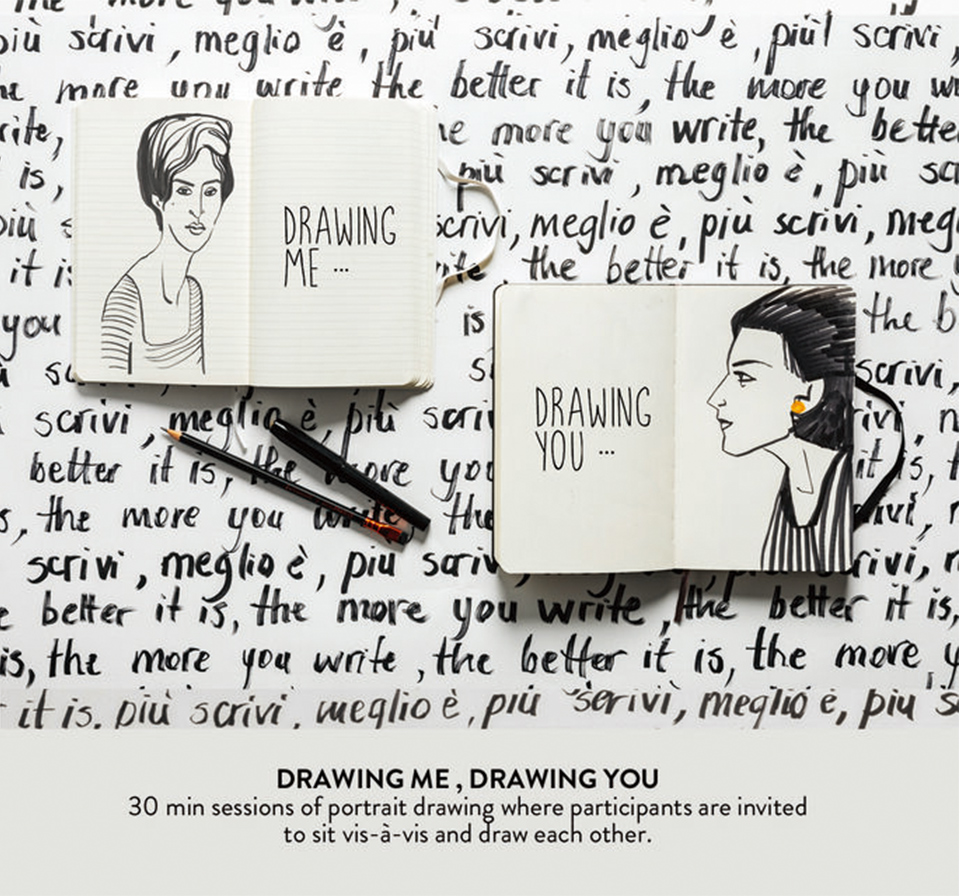 più scrivi, meglio è, più scrivi, meglio è, più scrivi,
the more you write the better it is, the more you
write, the more you write, the better
is, più scrivi, meglio è, più
più scrivi, meglio è, più scrivi,
it is the better it is, the more
DRAWING
ME ...
you is the
scrivi,
DRAWING
YOU ...
scrivi, meglio è, più
better it is, the more you it is,
the more you write, the
scrivi, meglio è, più
better it is, the more you write, the better it is,
is, the more you write, the better it is, the more
it is. più scrivi, meglio è, più scrivi, meglio è, più
DRAWING ME , DRAWING YOU
30 min sessions of portrait drawing where participants are invited
to sit vis-à-vis and draw each other.